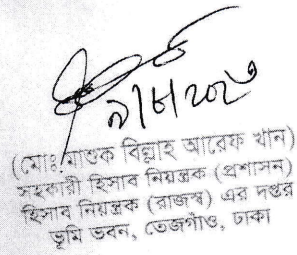 ৯/৮/২০২৩
(মোঃ মাশুক বিল্লাহ আরেফ খান)
সহকারী হিসাব নিয়ন্ত্রক (প্রশাসন)
হিসাব নিয়ন্ত্রক (রাজস্ব) এর দপ্তর
ভূমি ভবন, তেজগাঁও, ঢাকা